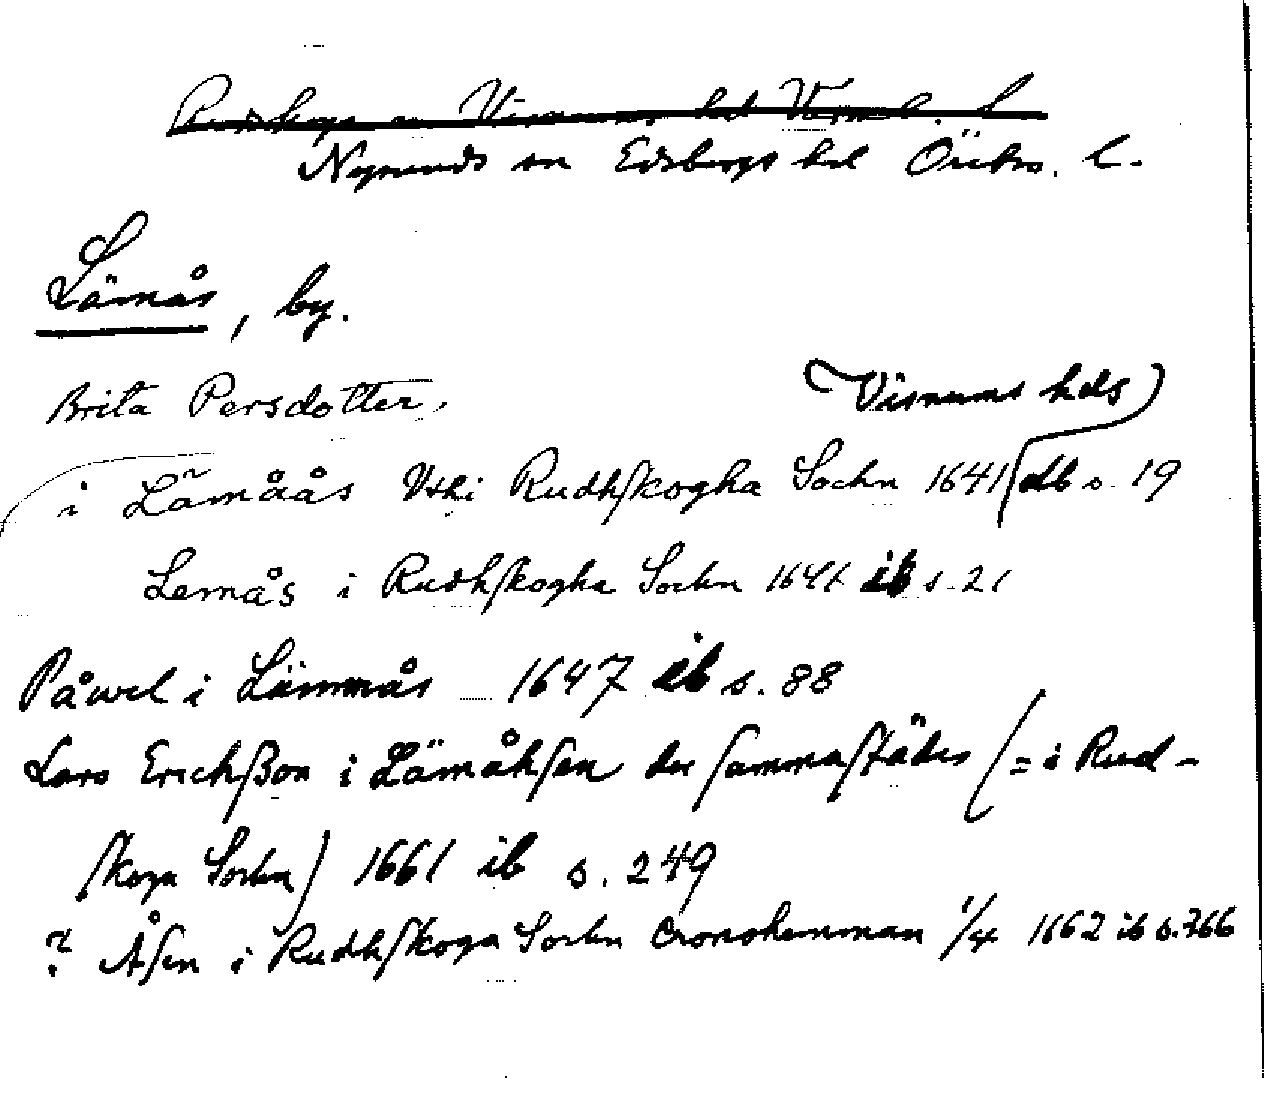 Rudskoga sn Visnums hd Värml. l
Nysunds sn Edsbergs hd Örebro. l.
Lämås, by.
Brita Persdotter,
(Visnums hds)
i Lämåås Vthi Rudhskogha Sochn 1641 db s. 19
Lemås i Rudhskogha Sochn 1641 ib s. 21
Påwel i Lämmås 1647 ib s. 88
Lars Erichßon i Lämåhsen der sammastädes (= i Rud-
skoga Sochn) 1661 ib s. 249
? Åsen i Rudhskoga Sochn Cronohemman 1/4 1662 ib s. 266